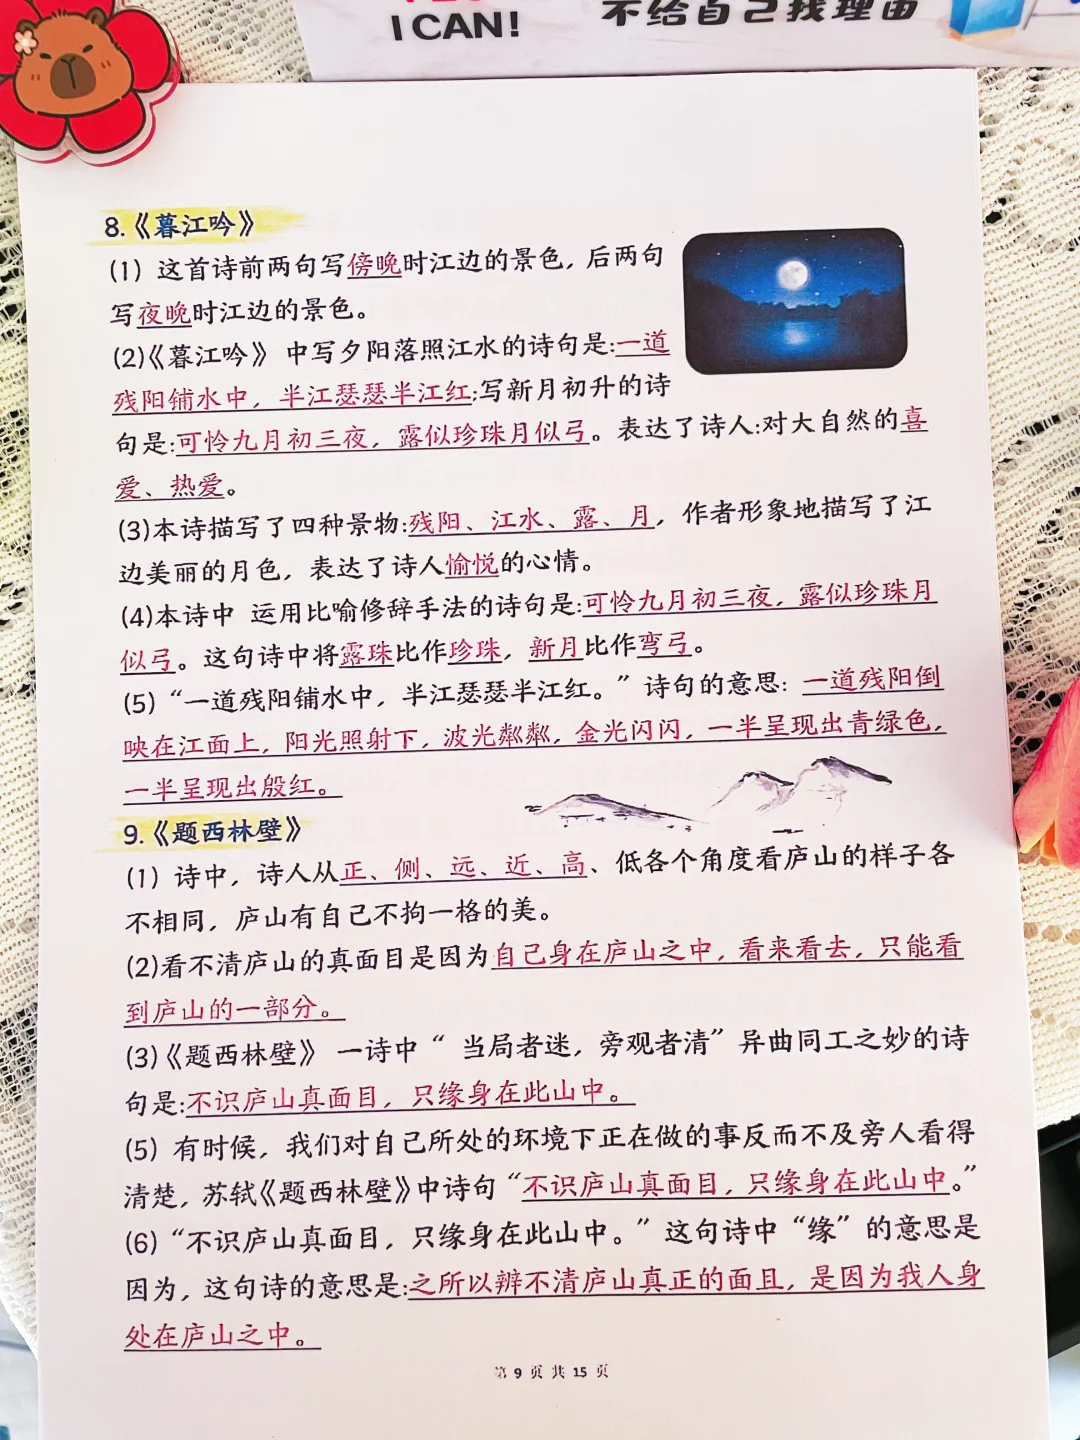 I CAN!
不给自己找理由
8.《暮江吟》
(1) 这首诗前两句写傍晚时江边的景色，后两句
写夜晚时江边的景色。
(2)《暮江吟》 中写夕阳落照江水的诗句是:一道
残阳铺水中，半江瑟瑟半江红;写新月初升的诗
句是:可怜九月初三夜，露似珍珠月似弓。表达了诗人:对大自然的喜
爱、热爱。
(3)本诗描写了四种景物:残阳、江水、露、月，作者形象地描写了江
边美丽的月色，表达了诗人愉悦的心情。
(4)本诗中 运用比喻修辞手法的诗句是:可怜九月初三夜，露似珍珠月
似弓。这句诗中将露珠比作珍珠，新月比作弯弓。
(5)“一道残阳铺水中，半江瑟瑟半江红。”诗句的意思: 一道残阳倒
映在江面上，阳光照射下，波光粼粼，金光闪闪，一半呈现出青绿色，
一半呈现出殷红。
9.《题西林壁》
(1) 诗中，诗人从正、侧、远、近、高、低各个角度看庐山的样子各
不相同，庐山有自己不拘一格的美。
(2)看不清庐山的真面目是因为自己身在庐山之中，看来看去，只能看
到庐山的一部分。
(3)《题西林壁》 一诗中“ 当局者迷，旁观者清”异曲同工之妙的诗
句是:不识庐山真面目，只缘身在此山中。
(5) 有时候，我们对自己所处的环境下正在做的事反而不及旁人看得
清楚，苏轼《题西林壁》中诗句“不识庐山真面目，只缘身在此山中。”
(6)“不识庐山真面目，只缘身在此山中。”这句诗中“缘”的意思是
因为，这句诗的意思是:之所以辨不清庐山真正的面且，是因为我人身
处在庐山之中。
第 9 页 共 15 页